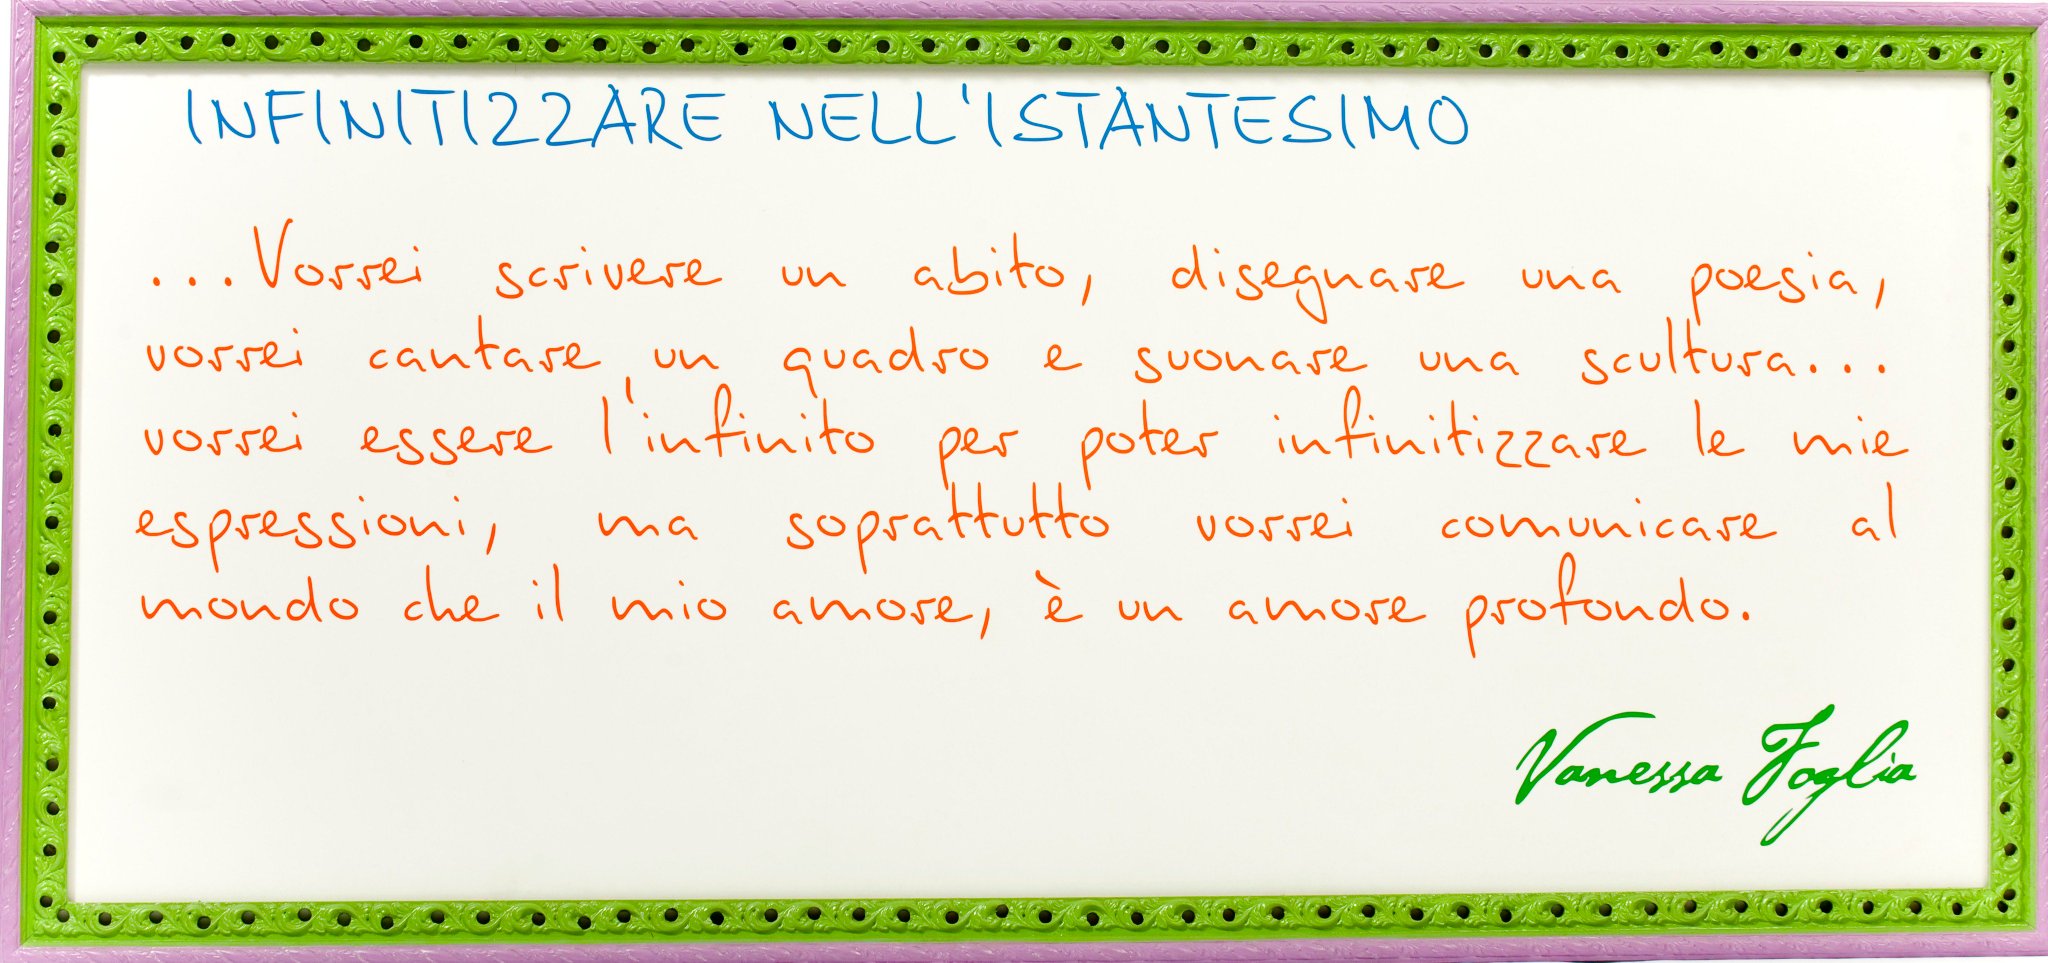 INFINITIZZARE NELL'ISTANTESIMO
...Vorrei scrivere un abito, disegnare una poesia,
vorrei cantare un quadro e suonare una scultura...
vorrei essere l'infinito per poter infinitizzare le mie
espressioni, ma soprattutto vorrei comunicare al
mondo che il mio amore, è un amore profondo.
Vanessa Foglia